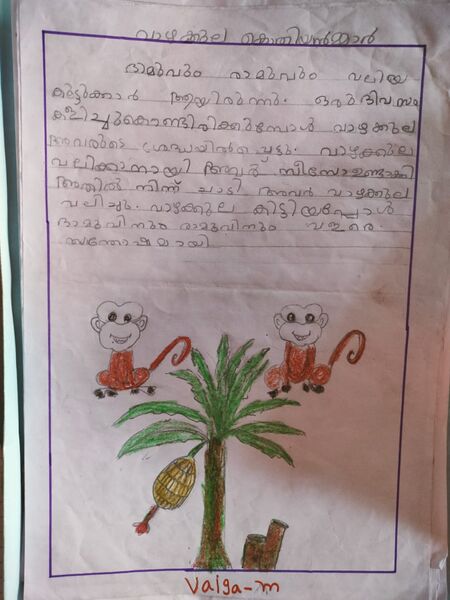 വാഴക്കുല കൊതിയൻമാർ
ദാമുവും രാമുവും വലിയ
കൂട്ടുക്കാർ ആയിരുന്നു. ഒരുദിവസം
കളിച്ചുകൊണ്ടിരിക്കുമ്പോൾ വാഴക്കുല
അവരുടെ ശ്രദ്ധയിൽപെട്ടു. വാഴക്കുല
വലിക്കാനായി അവർ സീസോഉണ്ടാക്കി
അതിൽ നിന്ന് ചാടി അവർ വാഴക്കുല
വലിച്ചു. വാഴക്കുല കിട്ടിയപ്പോൾ
ദാമുവിനും രാമുവിനും വളരെ
സന്തോഷമായി
Vaiga-m